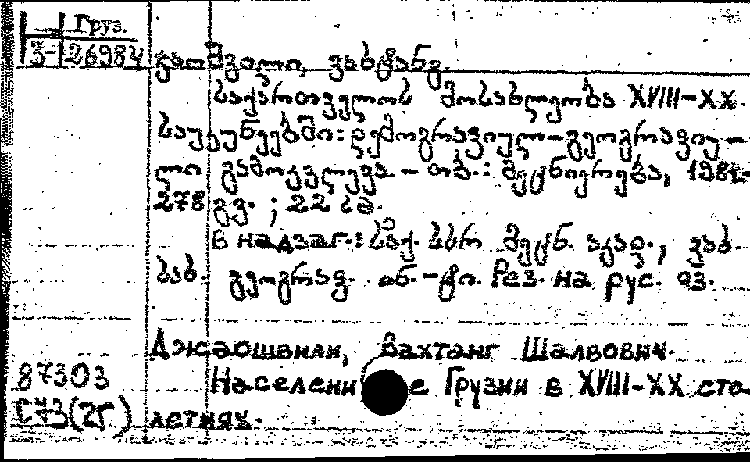 Груз.
3-26984
ჯაოშვილი, ვახტანგ.
საქართველოს მოსახლეობა XVIII-XX
საუკუნეებში: დემოგრაფიულ-გეოგრაფიუ-
ლი გამოკვლევა. - თბ.: მეცნიერება, 1984.-
278 გვ. ; 22 სმ.
В надзаг.: საქ. სსრ მეცნ. აკად.,
გეოგრაფ. ინ.-ტი. Рез. на рус. яз.
Джаошвили, Вахтанг Шалвович.
87303 Населени е Грузии в XVIII-XX сто-
С73(2Г) летиях.